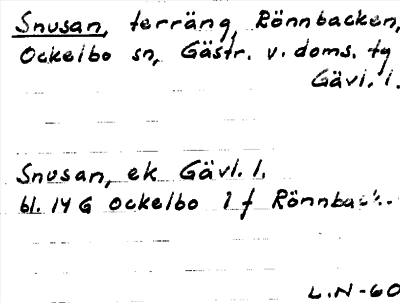 Snusan, terräng, Rönnbacken,
Ockelbo sn, Gästr. v. doms. tg
Gävl. l.
Snusan, ek Gävl. l.
bl. 14 G Ockelbo 1 f Rönnback.
L.N-60